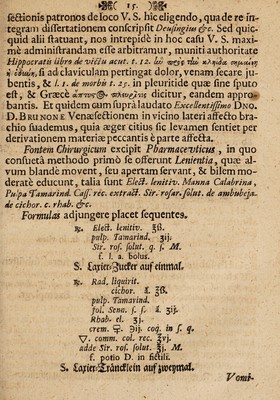 15.
sectionis patronos de loco V. S. hic eligendo, qua de re in-
tegram dissertationem conscripsit Deusingius &c. Sed quic-
quid alii statuant, nos intrepidè in hoc casu V. S. maxi-
mè administrandam esse arbitramur, muniti authoritate
Hippocratis libro de victu acut. t. 12.
si ad claviculam pertingat dolor, venam secare ju-
bentis, & l. 1. de morbis t. 25. in pleuritide quæ sine sputo
est, & Græcè dicitur, eandem appro-
bantis. Et quidem cum suprà laudato Excellentissimo DNO.
D. BRUNONE Venæsectionem in vicino lateri affecto bra-
chio suademus, quia æger citius sic levamen sentiet per
derivationem materiæ peccantis è parte affecta.
Fontem Chirurgicum excipit Pharmaceuticus, in quo
consuetâ methodo primò se offerunt Lenientia, quæ al-
vum blandè movent, seu apertam servant, & bilem mo-
deratè educunt, talia sunt Elect. lenitiv. Manna Calabrina,
Pulpa Tamarind. Cass. réc. extract. Sir. rosar. solut. de ambubeja.
de cichor. c. rhab. &c.
Formulas adjungere placet sequentes.
℞. Elect. lenitiv. ʒß.
pulp. Tamarind. ʒij.
Sir. ros. solut. q. s. M.
f. l. a. bolus.
S. Laxier-Zucker auf einmal.
℞. Rad. liquirit.
cichor. ā. ʒß.
pulp. Tamarind.
fol. Senn. s. s. ā. ʒij.
Rhab. el. ʒj.
crem. ☿. ℈ij. coq. in s. q.
▽. comm. col. rec. ℥vj.
adde Sir. ros. solut. ℥j. M.
f. potio D. in fictili.
S. Laxier-Träncklein auf zweymal.
Vomi-